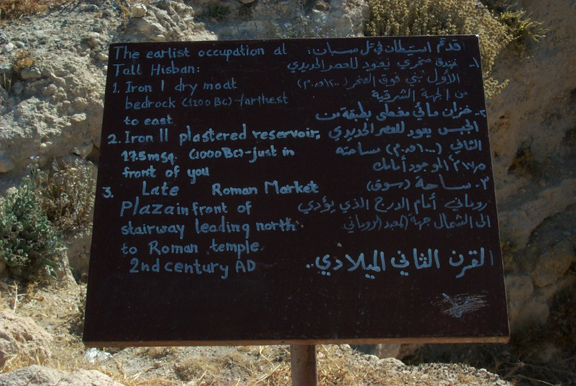 The earlist occupation at
Tall Hisban:
1. Iron I dry moat
bedrock (1200 BC)-/arthest
to east
2. Iron II plastered reservoir,
17.5msq. (1000 BC)-just in
front of you
3. Late Roman Market
Plaza in front of
stairway leading north
to Roman temple.
2nd century AD
اقدم استيطان في تل حسبان:
١. خندق صخري يعود للعصر الحديدي
الأول
من الجهة الشرقية
٢. خزان مائي مغطى بطبقة من
الجبس يعود للعصر الحديدي
الثاني (١٠٠٠ق.م) مساحته
الموجود أمامك
٣. ساحة (سوق)
روماني أمام الدرج الذي يؤدي
الى الشمال جهة المعبد الروماني
القرن الثاني الميلادي.